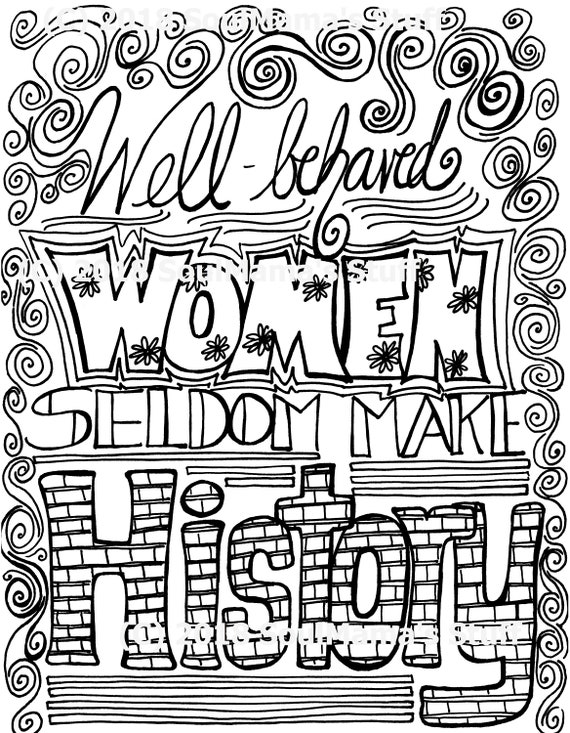 (C) 2018 SoulMama's Stuff
Well-behaved
WOMEN
(C) 2018 SoulMama's Stuff
SELDOM MAKE
History
(C) 2018 SoulMama's Stuff